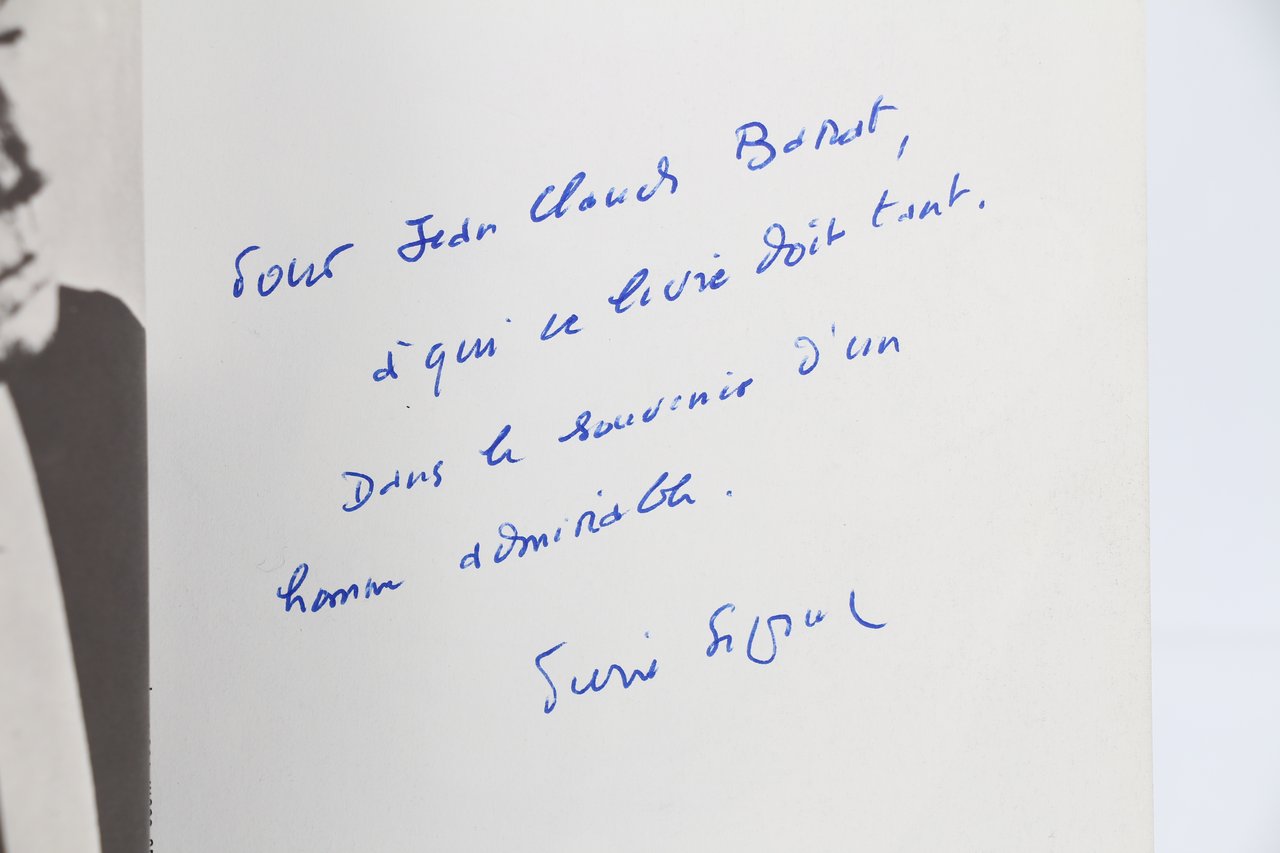 Pour Jean Claude Barat,
à qui ce livre doit tant.
Dans le souvenir d'un
homme admirable.
Pierre